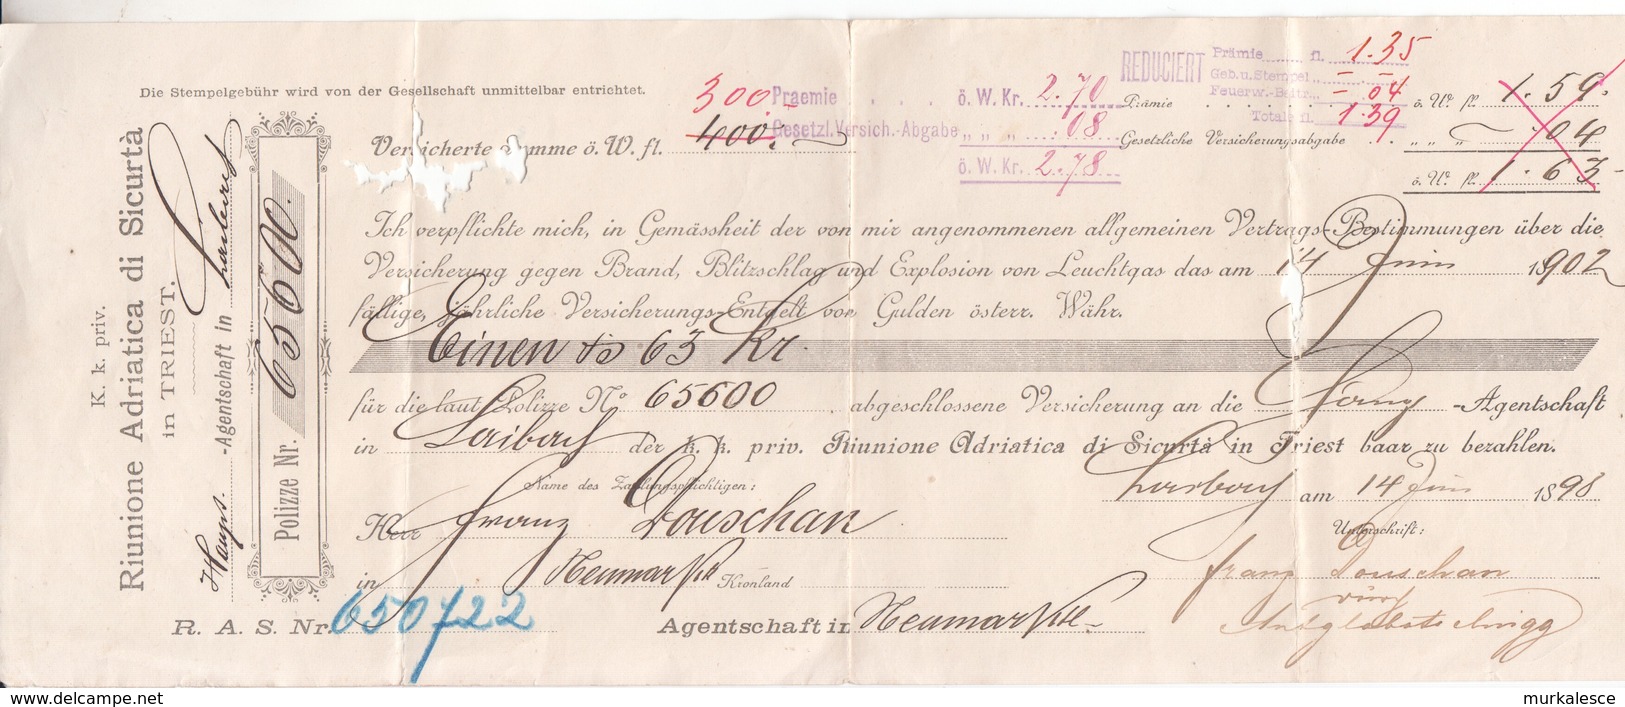 K. k. priv.
Riunione Adriatica di Sicurtà
in TRIEST.
Haupt. -Agentschaft in
Polizze Nr. 65600.
Die Stempelgebühr wird von der Gesellschaft unmittelbar entrichtet.
300
Versicherte Summe ö. W. fl. 400
Praemie ö. W. Kr. 2.70
Gesetzl. Versich.-Abgabe „ „ „ :08
ö. W. Kr. 2.78
REDUCIERT
Prämie fl. 1.35
Geb. u. Stempel „ - . -
Feuerw.-Beitr. „ - 04
Totale fl. 1.39
Prämie ö. W. fl. 1.59
Gesetzliche Versicherungsabgabe „ „ „ 04
ö. W. fl. 1.63
Ich verpflichte mich, in Gemässheit der von mir angenommenen allgemeinen Vertrags-Bestimmungen über die
Versicherung gegen Brand, Blitzschlag und Explosion von Leuchtgas das am 14 Juni 1902
fällige, jährliche Versicherungs-Entgelt von Gulden österr. Währ.
Einen fl 63 Kr.
für die laut Polizze No 65600 abgeschlossene Versicherung an die -Agentschaft
in Laibach der k. k. priv. Riunione Adriatica di Sicurtà in Triest baar zu bezahlen.
Laibach am 14 Juni 1898
Name des Zahlungspflichtigen:
Unterschrift:
Herr Franz Douschan
Franz Douschan
in Neumarktl Kronland
durch
R. A. S. Nr. 650722
Agentschaft in Neumarktl
murkalesce